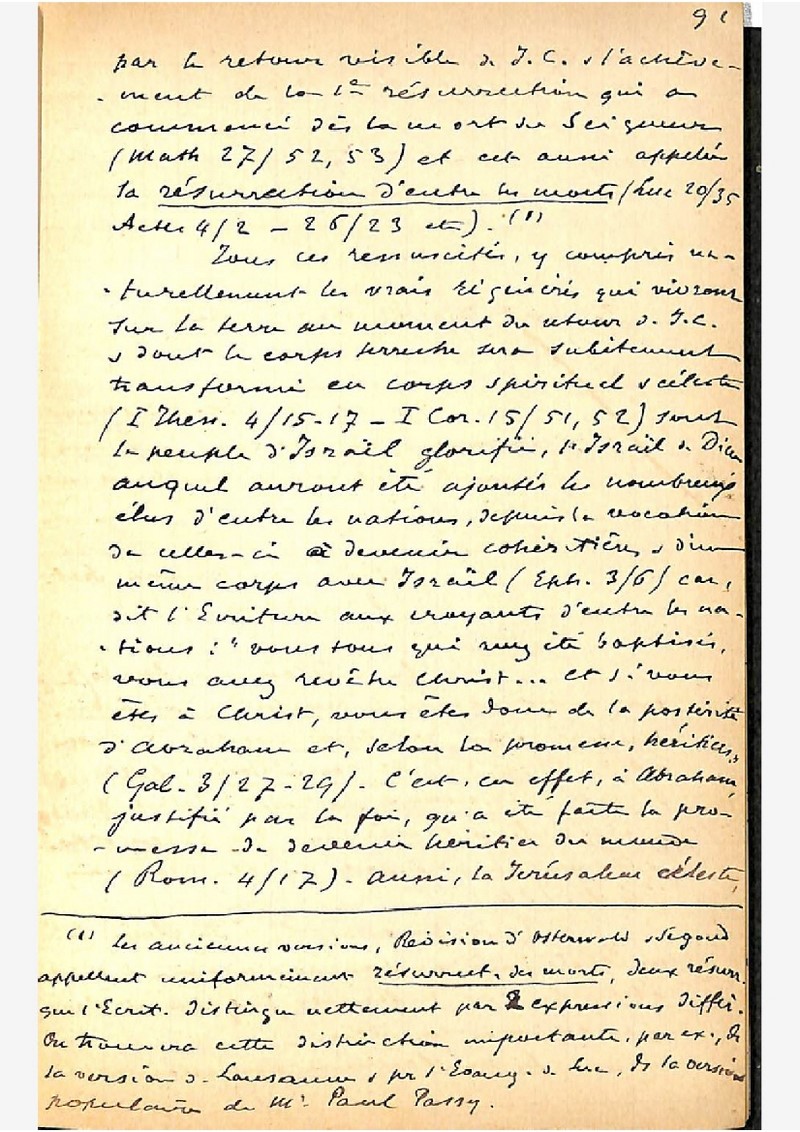 91
par le retour visible de J.C. & l'achève-
-ment de la 1re résurrection qui a
commencé dès la mort du Seigneur
(Math 27/52, 53) et est aussi appelée
la résurrection d'entre les morts (Luc 20/35
Actes 4/2 – 26/23 etc). (1)
Tous ces ressuscités, y compris na-
-turellement les vrais régénérés qui vivront
sur la terre au moment du retour de J.C.
& dont le corps terrestre sera subitement
transformé en corps spirituel & céleste
(I Thess. 4/15-17 – I Cor. 15/51, 52) sont
le peuple d'Israël glorifié, l'Israël de Dieu
auquel auront été ajoutés les nombreux
élus d'entre les nations, depuis la vocation
de celles-ci à devenir cohéritières & d'un
même corps avec Israël (Eph. 3/6) car,
dit l'Ecriture aux croyants d'entre les na-
-tions : "vous tous qui avez été baptisés,
vous avez revêtu Christ... et si vous
êtes à Christ, vous êtes donc de la postérité
d'Abraham et, selon la promesse, héritiers"
(Gal. 3/27-29). C'est, en effet, à Abraham,
justifié par la foi, qu'a été faite la pro-
-messe de devenir héritier du monde
(Rom. 4/17). Aussi, la Jérusalem céleste,
(1) Les anciennes versions, Révision d'Osterwald & Segond
appellent uniformément résurrect. des morts, deux résurr.
que l'Ecrit. distingue nettement par 2 expressions différ.
On trouvera cette distinction importante, par ex., ds
la version de Lausanne & pr l'Evang. de Luc, ds la version
populaire de Mr. Paul Passy.